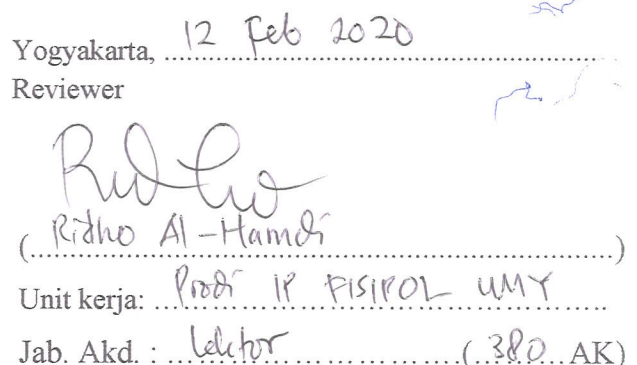 Yogyakarta, 12 Feb 2020
Reviewer
(Ridho Al-Hamdi)
Unit kerja: Prodi IP FISIPOL UMY
Jab. Akd. : Lektor (380 AK)